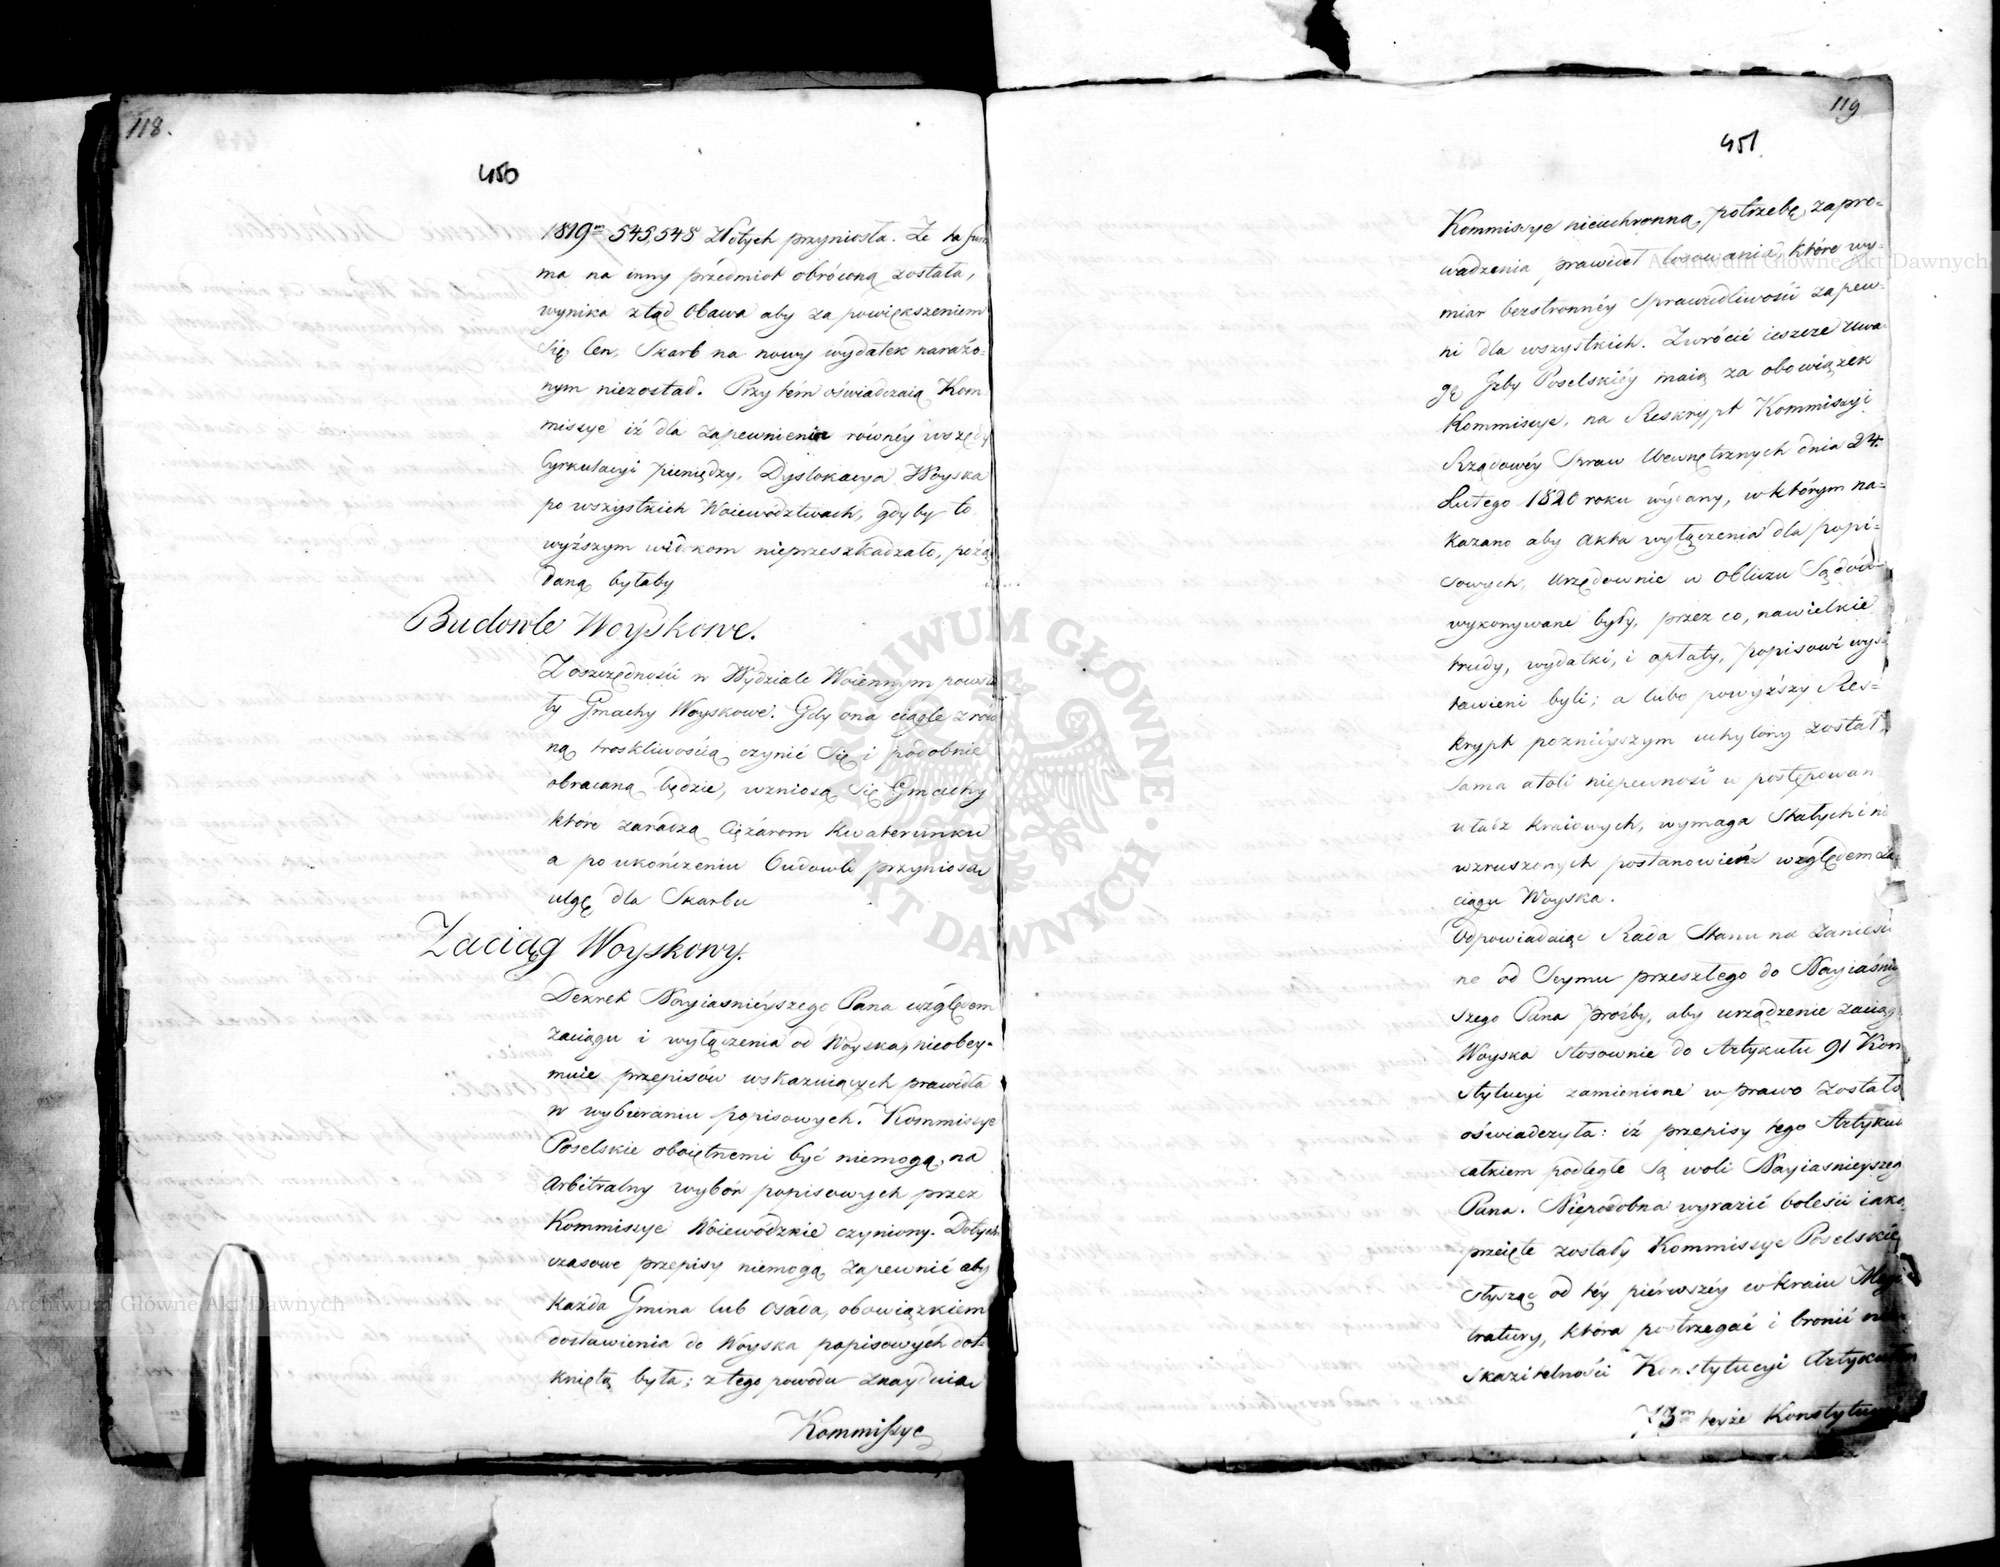 118.
450
1819m 545,548 Złotych przyniosła. Że ta sum
ma na inny przedmiot obróconą została,
wynika ztąd obawa aby za powiększeniem
się Cen, Skarb na nowy wydatek narażo-
nym niezostał. Przy tém oświadczaią Kom
missye iż dla zapewnienia równéy wszędy
Cyrkulacyi pieniędzy, Dyslokacya Woyska
po wszystkich Woiewództwach, gdyby to
wyższym widokom nieprzeszkadzało, pożą
daną byłaby
Budowle Woyskowe.
Z oszczędności w Wydziale Woiennym powsta
ły Gmachy Woyskowe. Gdy ona ciągle z rów
ną troskliwością czynić się i podobnie
obracaną będzie, wzniosą się Gmachy
które zaradzą Ciężarom Kwaterunku
a po ukończeniu budowli przyniosą
ulgę dla Skarbu
Zaciąg Woyskowy.
Dekret Nayiaśnieyszego Pana względem
zaciągu i wyłączenia od Woyska, nieobey-
muie przepisów wskazuiących prawidła
w wybieraniu popisowych. Kommissye
Poselskie oboiętnemi być niemogą, na
Arbitralny wybór popisowych przez
Kommissye Woiewódzkie czyniony. Dotych
czasowe przepisy niemogą zapewnić aby
każda Gmina lub Osada, obowiązkiem
dostawienia do Woyska popisowych dot-
kniętą była; z tego powodu znayduią
Kommissye
119
451
Kommissye nieuchronną potrzebę, zapro-
wadzenia prawideł losowania, które wy-
miar bezstronnéy Sprawiedliwości zapew-
ni dla wszystkich. Zwrócić ieszcze uwa-
gę Izby Poselskiéy maią za obowiązek
Kommissye, na Reskrypt Kommissyi
Rządowéy Spraw Wewnętrznych dnia 24.
Lutego 1820 roku wydany, w którym na-
kazano aby akta wyłączenia dla popi-
sowych, urzędownie w obliczu Sądów
wykonywane były, przez co, na wielkie
trudy, wydatki, i opłaty, popisowi wys-
tawieni byli; a lubo powyższy Res-
krypt poznieyszym uchylony został,
sama atoli niepewność w postępowan
władz kraiowych, wymaga Stałych i nie
wzruszonych postanowień względem za-
ciągu Woyska.
Odpowiadaiąc Rada Stanu na zaniesio
ne od Seymu przeszłego do Nayiaśniey
szego Pana prośby, aby urządzenie zaciągu
Woyska stosownie do Artykułu 91 Kon
stytucyi zamienione w prawo zostało
oświadczyła: iż przepisy tego Artykułu
całkiem podległe są woli Nayiaśnieyszego
Pana. Niepodobna wyrazić boleści iaką
przeięte zostały Kommissye Poselskie
słysząc od téy pierwszéy w kraiu Magis
tratury, która postrzegać i bronić nie-
skazitelności Konstytucyi Artykułem
73m teyże Konstytucyi